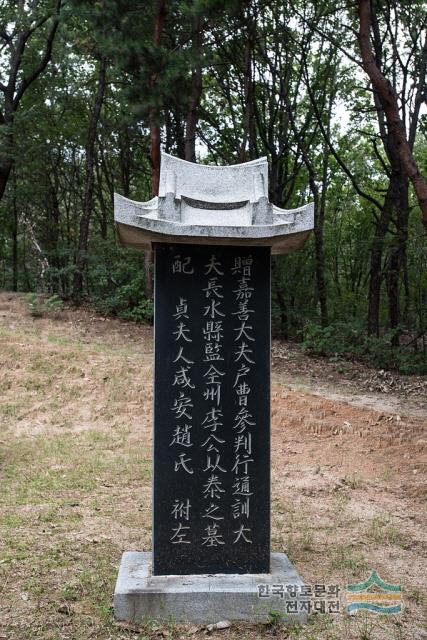 贈嘉善大夫戶曹參判行通訓大
夫長水縣監全州李公以泰之墓
配 貞夫人咸安趙氏 祔左
한국향토문화
전자대전